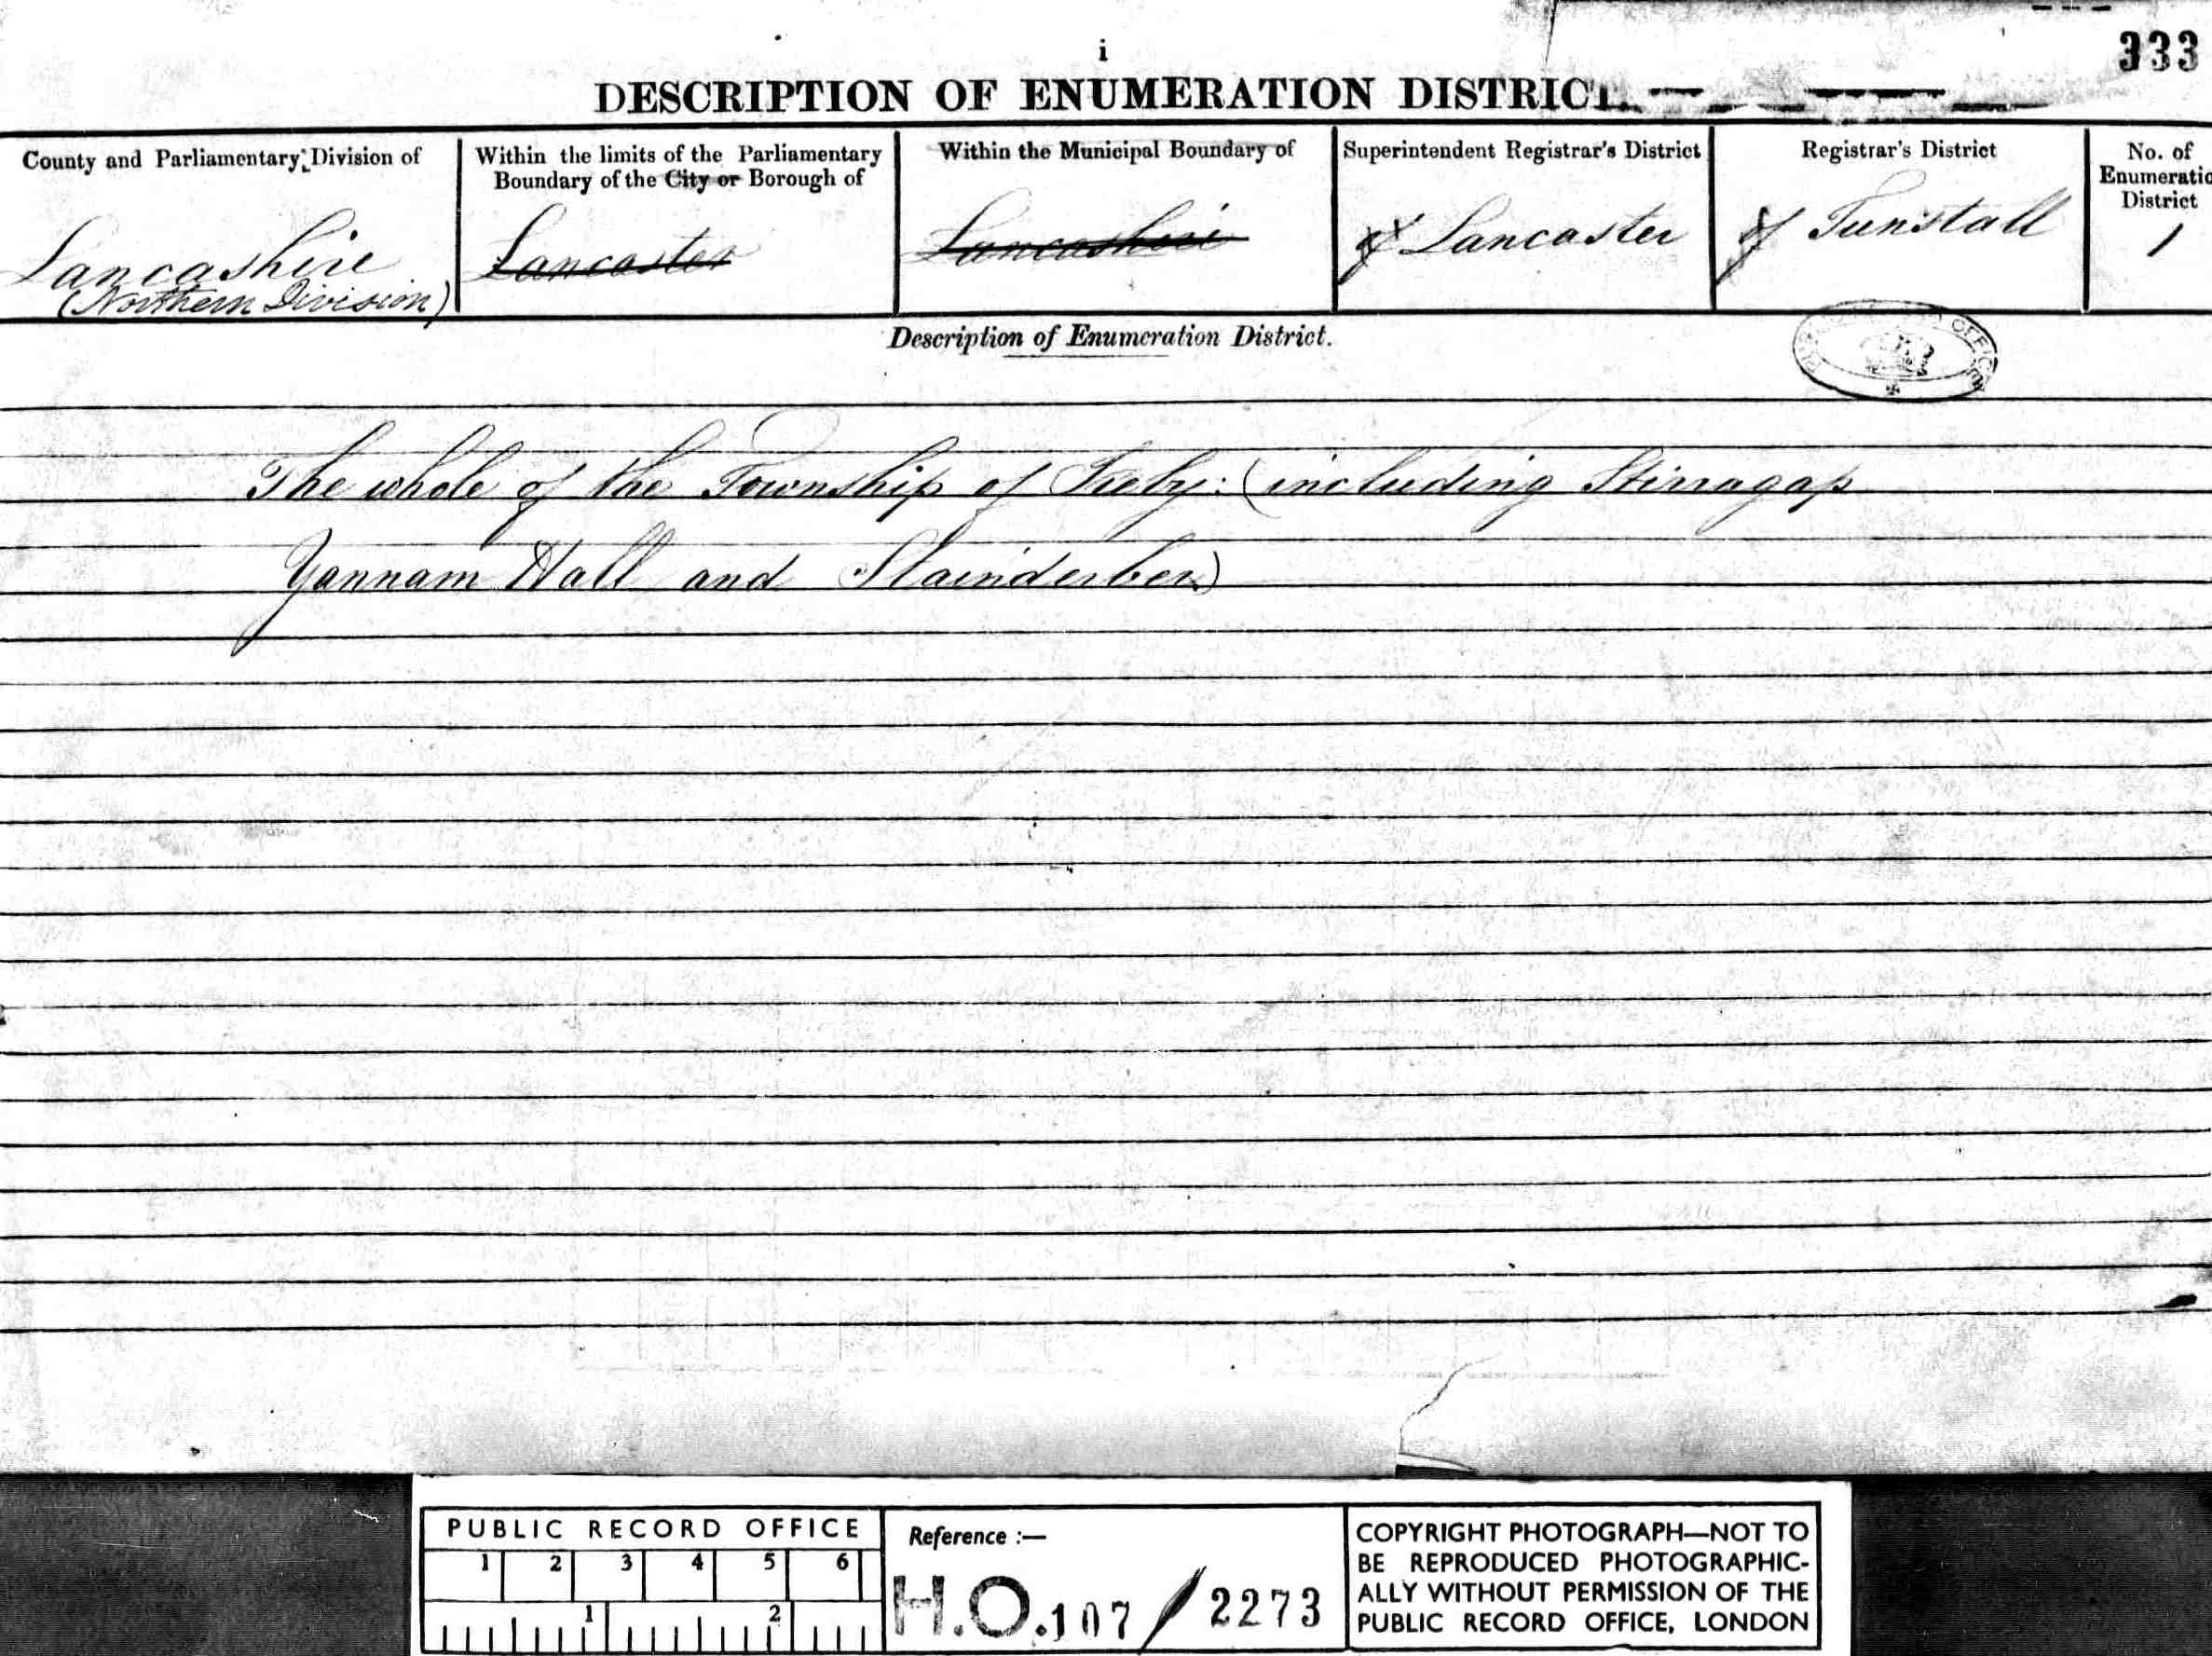 i
333
DESCRIPTION OF ENUMERATION DISTRICT.
County and Parliamentary Division of
Within the limits of the Parliamentary Boundary of the City or Borough of
Within the Municipal Boundary of
Superintendent Registrar's District
Registrar's District
No. of Enumeratio District
Lancashire
(Northern Division)
Lancaster
Lancashire
of Lancaster
of Tunstall
1
Description of Enumeration District.
The whole of the Township of Ireby: (including Stirragap
Yannam Hall and Stainderber)
PUBLIC RECORD OFFICE
1 2 3 4 5 6
1 2
Reference :—
H.O. 107 / 2273
COPYRIGHT PHOTOGRAPH—NOT TO
BE REPRODUCED PHOTOGRAPHIC-
ALLY WITHOUT PERMISSION OF THE
PUBLIC RECORD OFFICE, LONDON